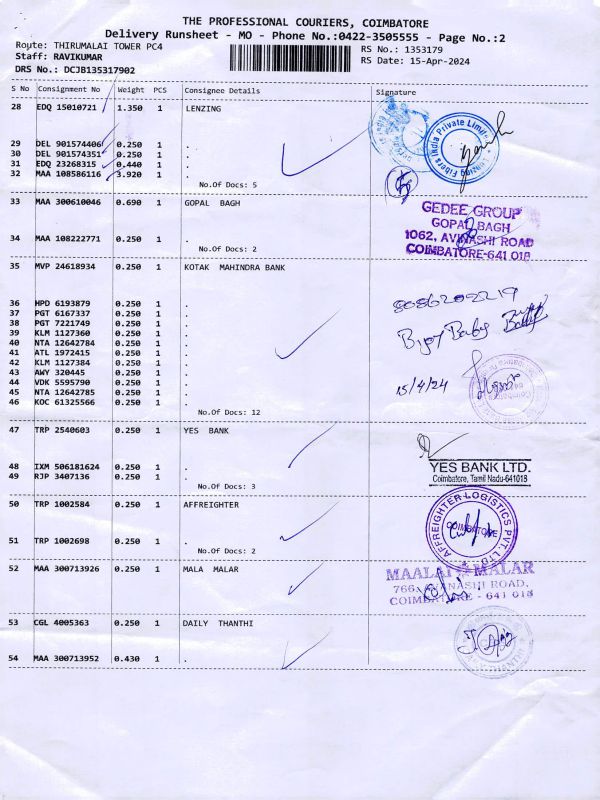 THE PROFESSIONAL COURIERS, COIMBATORE
Delivery Runsheet - MO - Phone No.:0422-3505555 - Page No.:2
Route: THIRUMALAI TOWER PC4 RS No.: 1353179
Staff: RAVIKUMAR RS Date: 15-Apr-2024
DRS No.: DCJB135317902
S No Consignment No Weight PCS Consignee Details Signature
28 EDQ 15010721 1.350 1 LENZING
Lenzing Fibers India Private Limited
29 DEL 901574406 0.250 1 .
30 DEL 901574351 0.250 1 .
31 EDQ 23268315 0.440 1 .
32 MAA 108586116 3.920 1 .
No.Of Docs: 5
5
33 MAA 300610046 0.690 1 GOPAL BAGH
GEDEE GROUP
GOPAL BAGH
1062, AVINASHI ROAD
COIMBATORE-641 018
34 MAA 108222771 0.250 1 .
No.Of Docs: 2
35 MVP 24618934 0.250 1 KOTAK MAHINDRA BANK
36 HPD 6193879 0.250 1 .
37 PGT 6167337 0.250 1 .
38 PGT 7221749 0.250 1 .
39 KLM 1127360 0.250 1 .
40 NTA 12642784 0.250 1 .
41 ATL 1972415 0.250 1 .
42 KLM 1127384 0.250 1 .
43 AWY 320445 0.250 1 .
44 VDK 5595790 0.250 1 .
45 NTA 12642785 0.250 1 .
46 KOC 61325566 0.250 1 .
No.Of Docs: 12
8086202219
Bijoy Baby
15/4/24
47 TRP 2540603 0.250 1 YES BANK
48 IXM 506181624 0.250 1 .
49 RJP 3407136 0.250 1 .
No.Of Docs: 3
YES BANK LTD.
Coimbatore, Tamil Nadu-641018
50 TRP 1002584 0.250 1 AFFREIGHTER
51 TRP 1002698 0.250 1 .
No.Of Docs: 2
AFFREIGHTER LOGISTICS PVT. LTD.
COIMBATORE
52 MAA 300713926 0.250 1 MALA MALAR
MAALAI MALAR
766, AVANASHI ROAD,
COIMBATORE - 641 018
53 CGL 4005363 0.250 1 DAILY THANTHI
54 MAA 300713952 0.430 1 .